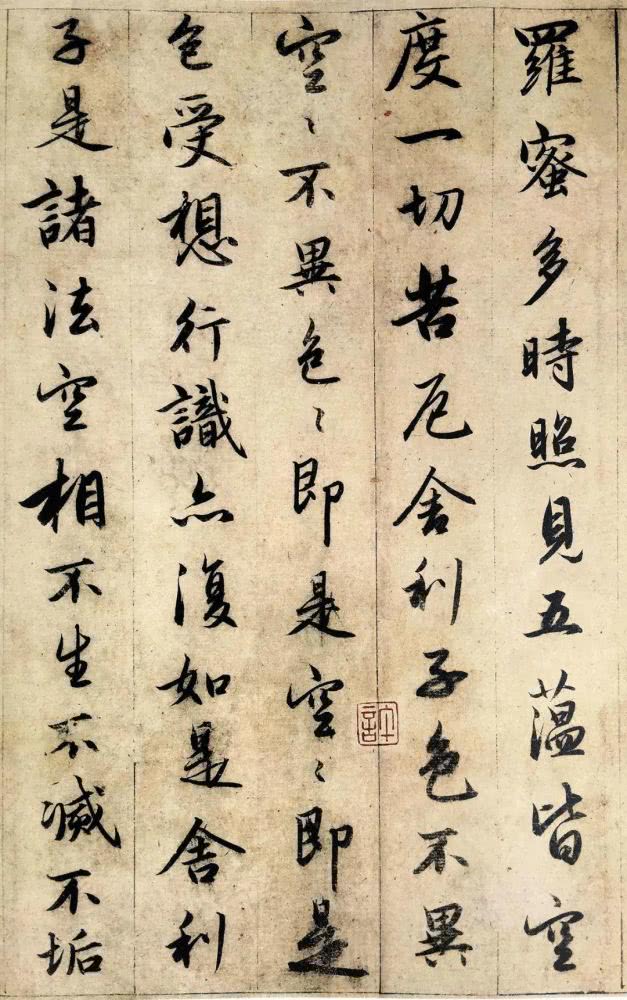 羅蜜多時照見五蕰皆空
度一切苦厄舍利子色不異
空〻不異色〻即是空〻即是
色受想行識亦復如是舍利
子是諸法空相不生不滅不垢